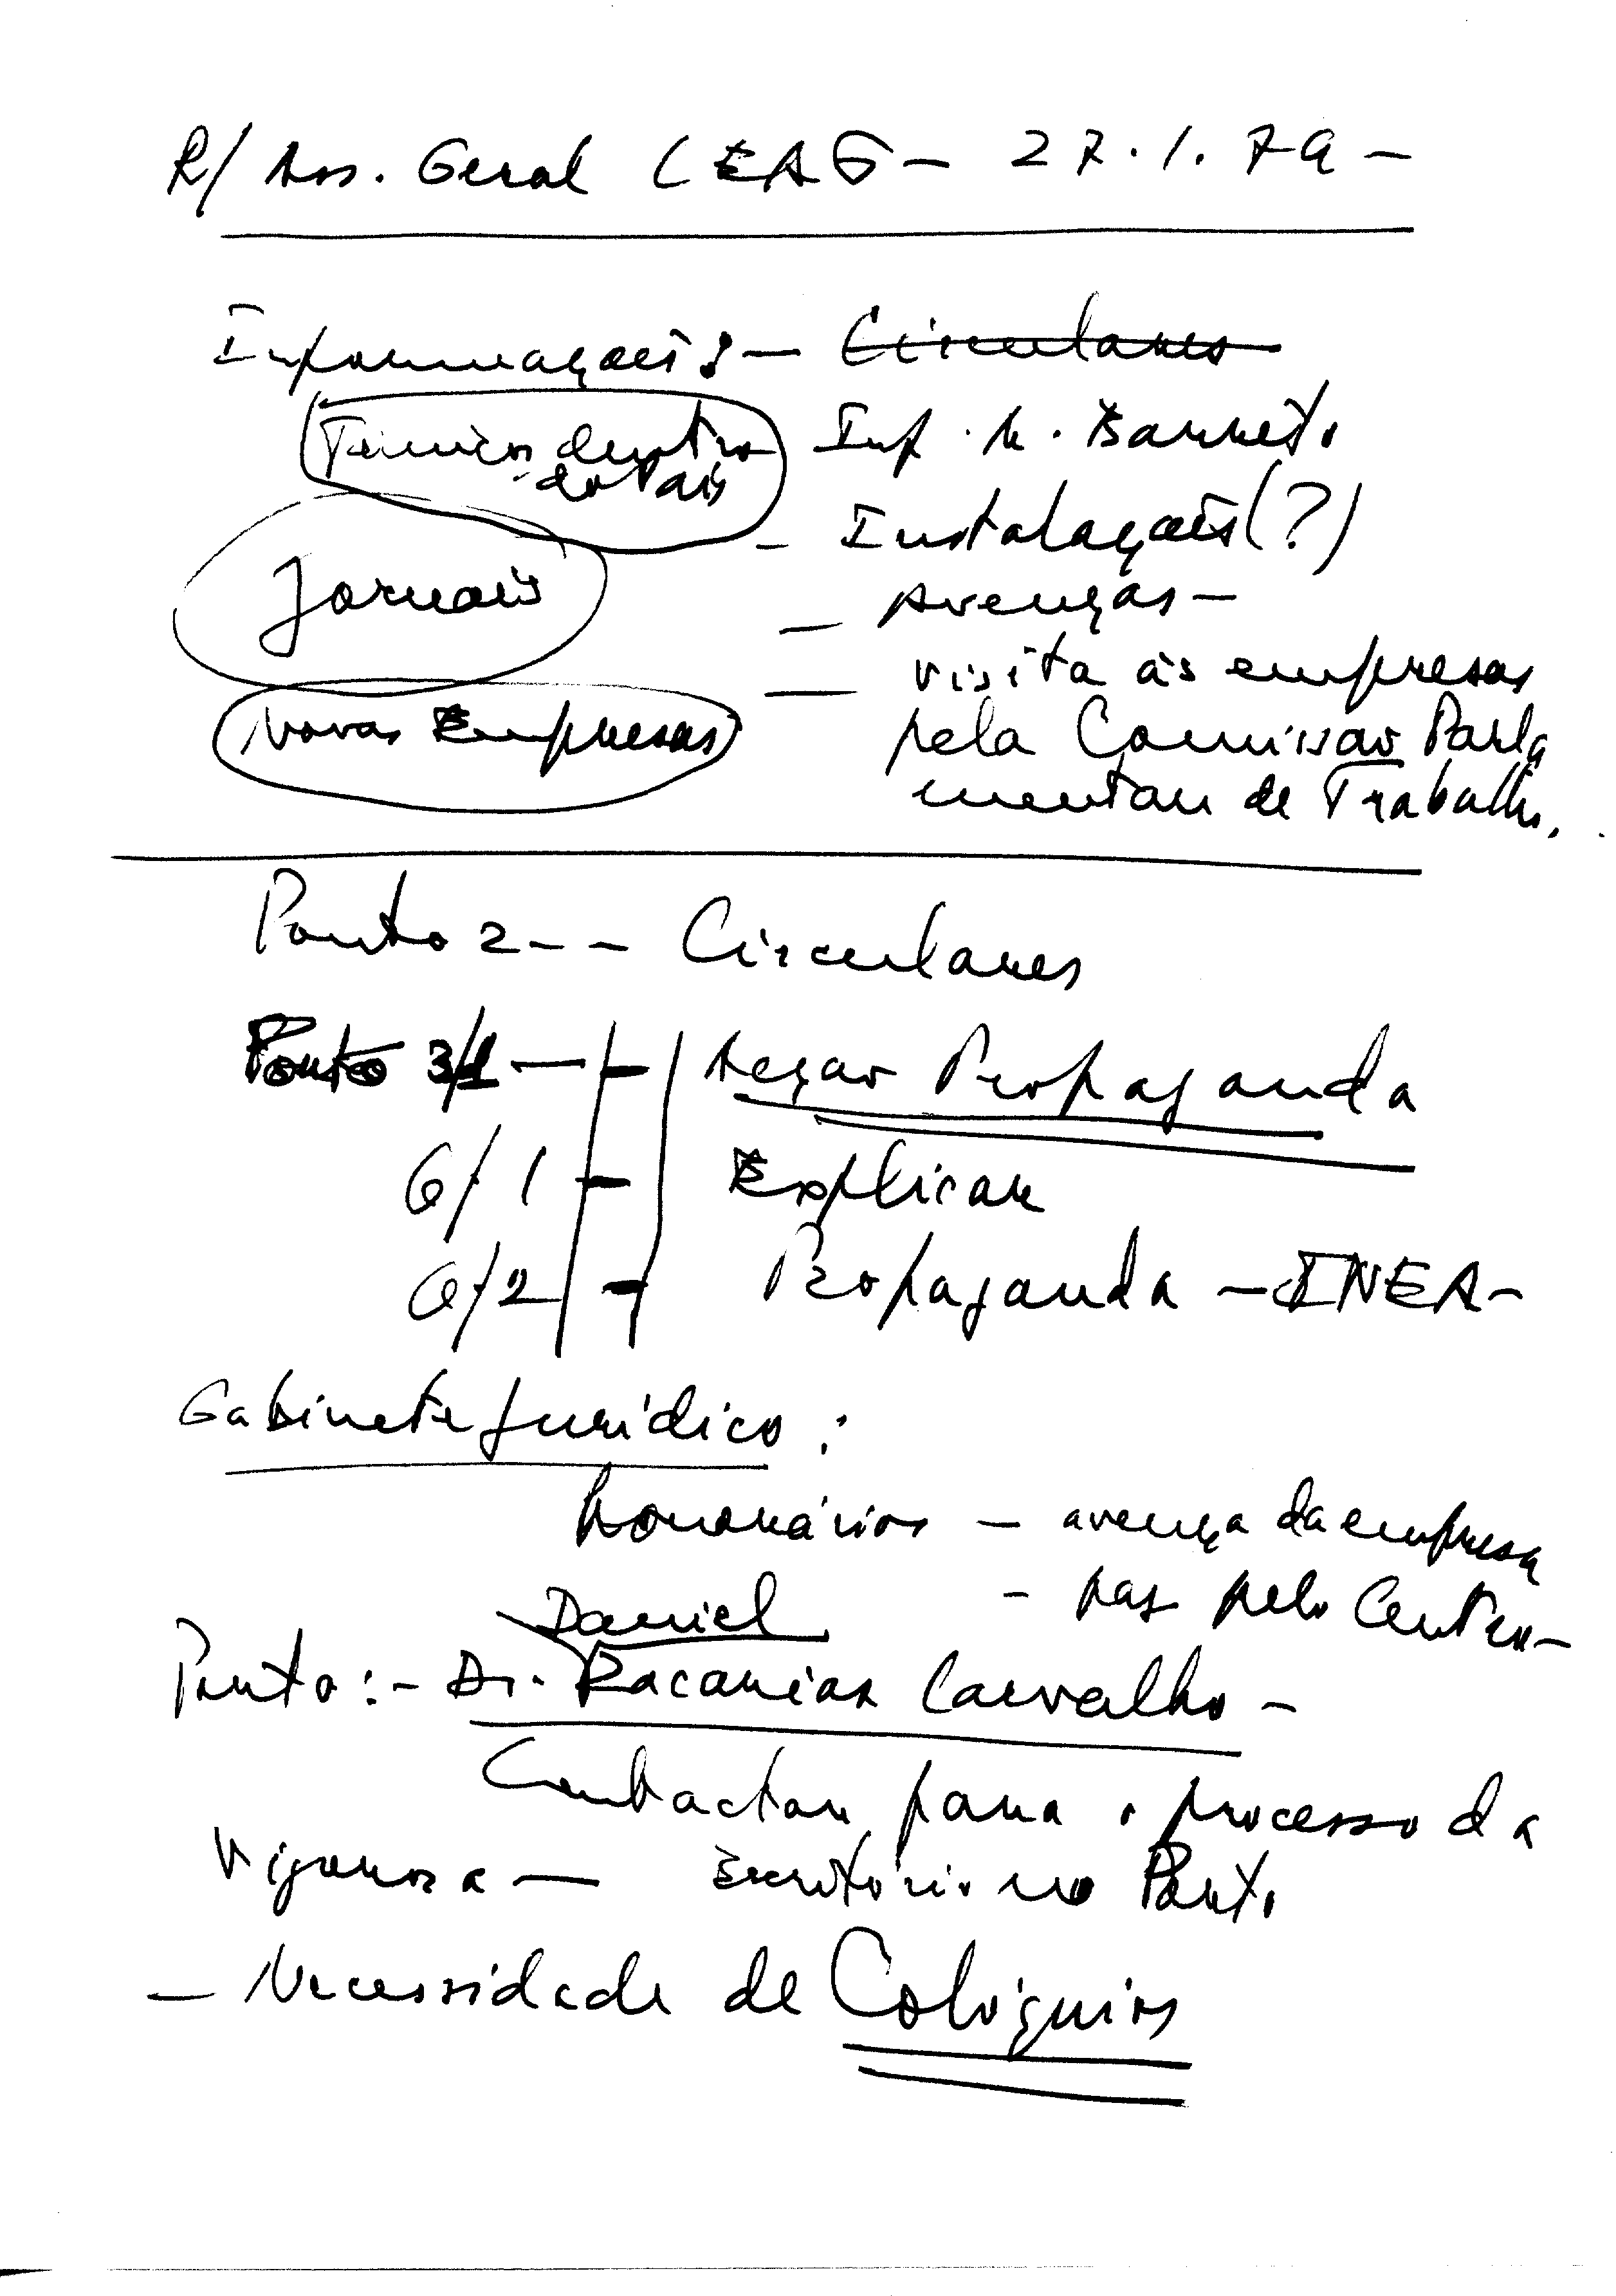 R/ Ass. Geral CEAG - 27.1.79 -
Informações: - Circulares
Técnicos dentro
do País
Inf. M. Barreto
- Instalações (?)
Jornais
- Avenças -
- visita às empresas
Novas Empresas
pela Comissão Parla
mentar de Trabalho.
Ponto 2 - - Circulares
Ponto 3/1 - - Acção Propaganda
6/1 - Explicar
6/2 - Propaganda - INEA -
Gabinete Jurídico:
honorários - avença da empresa
- pag pelo Centro -
Daniel
Porto: - Dr. Carvalho -
Contactar para o processo da
Vigorosa - Escritório no Porto
- Necessidade de Colóquios